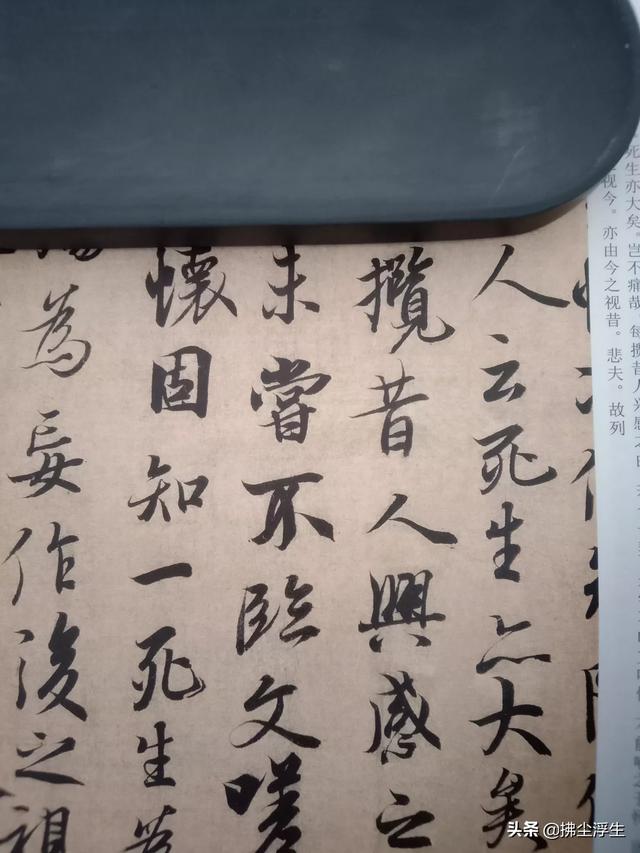 死生亦大矣。岂不痛哉。每揽昔人兴感
视今。亦由今之视昔。悲夫。故列
人云死生亦大矣
攬昔人興感之
未嘗不臨文嗟
懷固知一死生為
為妄作後之視
头条 @拂尘浮生